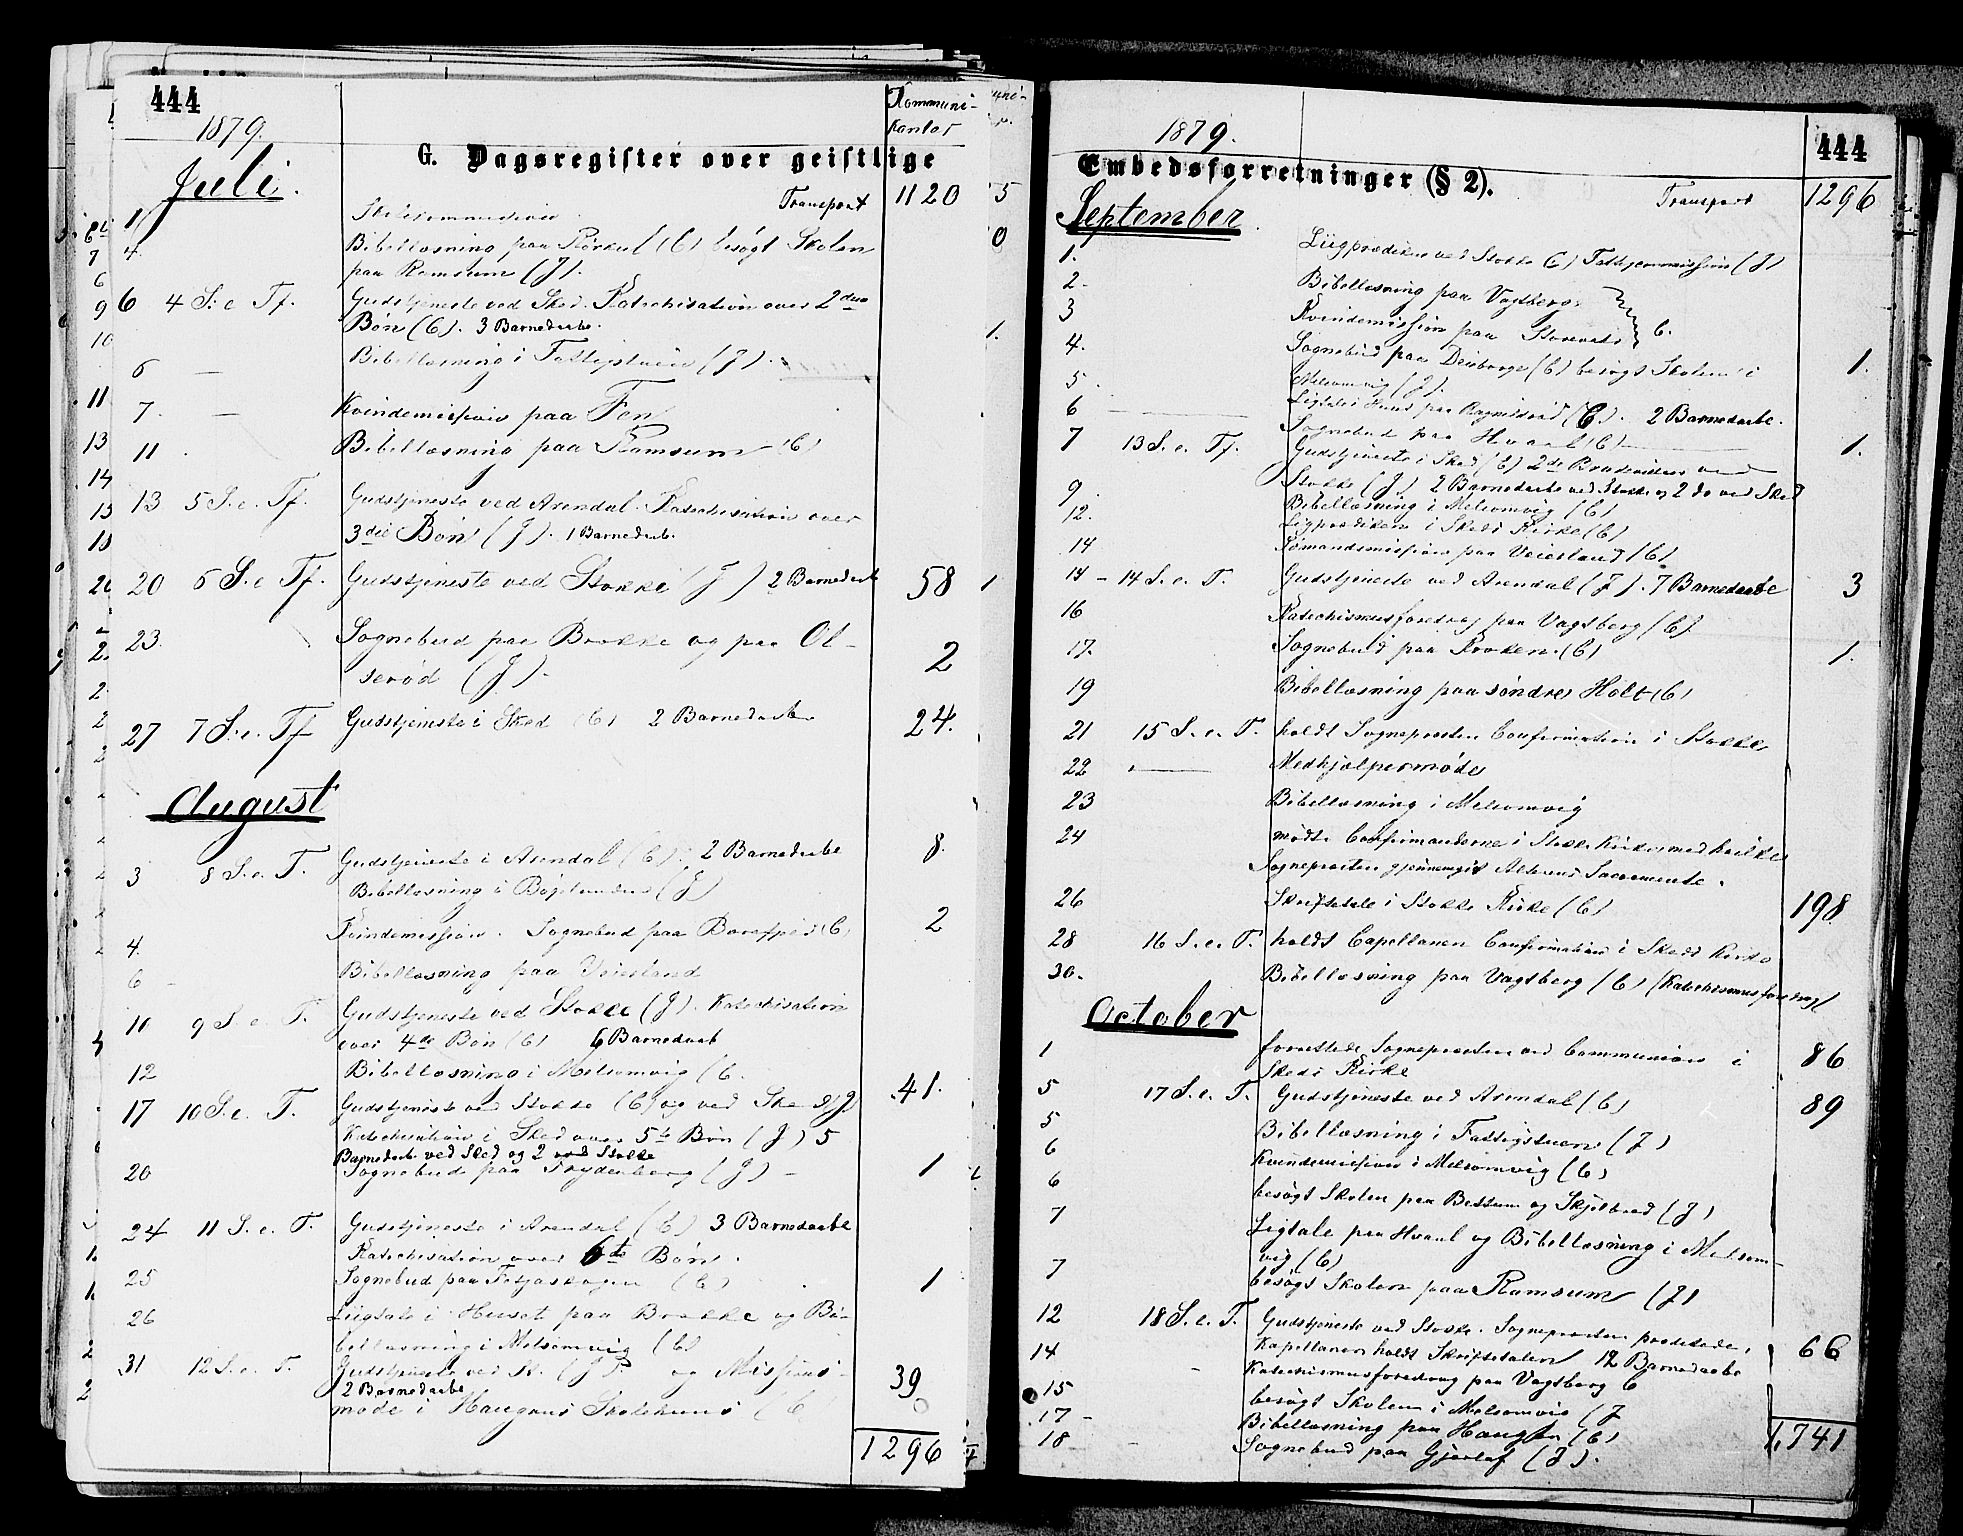 444
1879.
Kommuni-
kanter
G. Dagsregister over geistlige
Juli.
Transport 1120
1 Skolecommission
4. Bibellæsning paa (C) besøgt Skolen
paa Ramsum (J).
6 4 S. e. Tf. Gudstjeneste ved Skee. Katechisation over 2den
Bøn (C). 3 Barnedaabe.
6 — Bibellæsning i Fattigstuen (J).
7. — Kvindemission paa Fen
11 Bibellæsning paa Ramsum (C)
13 5 S. e. Tf. Gudstjeneste ved Arendal. Katechisation over
3die Bøn (J). 1 Barnedaab.
20 6 S. e. Tf. Gudstjeneste ved Stokke (J) 2 Barnedaab 58
23. Sognebud paa Brokke og paa Ol-
serød (J). 2
27 7 S. e. Tf Gudstjeneste i Skee (C) 2 Barnedaabe 24.
August
3 8 S. e. T. Gudstjeneste i Arendal (C). 2 Barnedaabe 8.
Bibellæsning i (J)
4. Kvindemission. Sognebud paa (C) 2
6 Bibellæsning paa Veierland
10 9 S. e. T. Gudstjeneste ved Stokke (J). Katechisation
over 4de Bøn (C) 6 Barnedaab
12 Bibellæsning i Melsomvig (C.
17 10 S. e. T. Gudstjeneste ved Stokke (C) og ved Skee (J) 41.
Katechisation i Skee over 5te Bøn (J) 5
Barnedaabe ved Skee og 2 ved Stokke
20 Sognebud paa (J) 1
24 11 S. e. T. Gudstjeneste i Arendal (C) 3 Barnedaabe
Katechisation over 6te Bøn.
25 Sognebud paa (C) 1
26 Liigtale i Huset paa Brokke og Bi-
bellæsning i Melsomvig (C)
31 12 S. e. T. Gudstjeneste ved St. (J) og Missions- 39
2 Barnedaabe
møde i Haugans Skolehuus (C
1296
1879.
444
Embedsforretninger (§ 2).
Transport 1296
September
1. Liigprædiken ved Stokke (C) Fattigcommission (J)
2. Bibellæsning paa Vagtberg
3 Kvindemission paa C.
4. Sognebud paa (C) besøgt Skolen i 1.
5. Melsomvig (J).
6 Ligtale i Huus paa (C). 2 Barnedaabe.
Sognebud paa Hvaal (C)
7 13 S. e. Tf. Gudstjeneste i Skee (C) ved 1.
Stokke (J) 2 Barnedaabe ved Stokke og 2 do ved Skee
9. Bibellæsning i Melsomvig (C)
12. Ligprædiken i Skees Kirke (C)
14 Sømandsmission paa Veierland (C)
14 14 S. e. T. Gudstjeneste ved Arendal (J). 7 Barnedaabe 3
16 Katechismusforedrag paa Vagtberg (C)
17. Sognebud paa Kroken (C) 1.
19 Bibellæsning paa søndre Holt (C)
21 15 S. e. T. holdt Sognepræsten Confirmation i Stokke
22 — Medhjælpermøde
23 Bibellæsning i Melsomvig
24 mødte Confirmanderne i Stokke Kirke med hvilke
Sognepræsten gjennemgik Alterens Sacramente.
26 Skriftetale i Stokke Kirke (C) 198
28 16 S. e. T. holdt Capellanen Confirmation i Skees Kirke
30. Bibellæsning paa Vagtberg (C) (Katechismusforedrag)
October
1 forrettede Sognepræsten ved Communion i 86
Skees Kirke
5 17 S. e. T. Gudstjeneste ved Arendal (C) 89
5 Bibellæsning i Fattigstuen (J)
6 Kvindemission i Melsomvig (C)
6 besøgt Skolen paa Bettum og Skjelbred (J)
7 Ligtale paa Hvaal og Bibellæsning i Melsom-
vig (C)
7 besøgt Skolen paa Ramsum (J)
12 18 S. e. T. Gudstjeneste ved Stokke. Sognepræsten prædikede,
Kapellanen holdt Skriftetalen 12 Barnedaabe 66
14 Katechismusforedrag paa Vagtberg C
15 besøgt Skolen i Melsomvig (J
17 Bibellæsning paa Haugan (C)
18 Sognebud paa Gjerlaf (J).
1,741